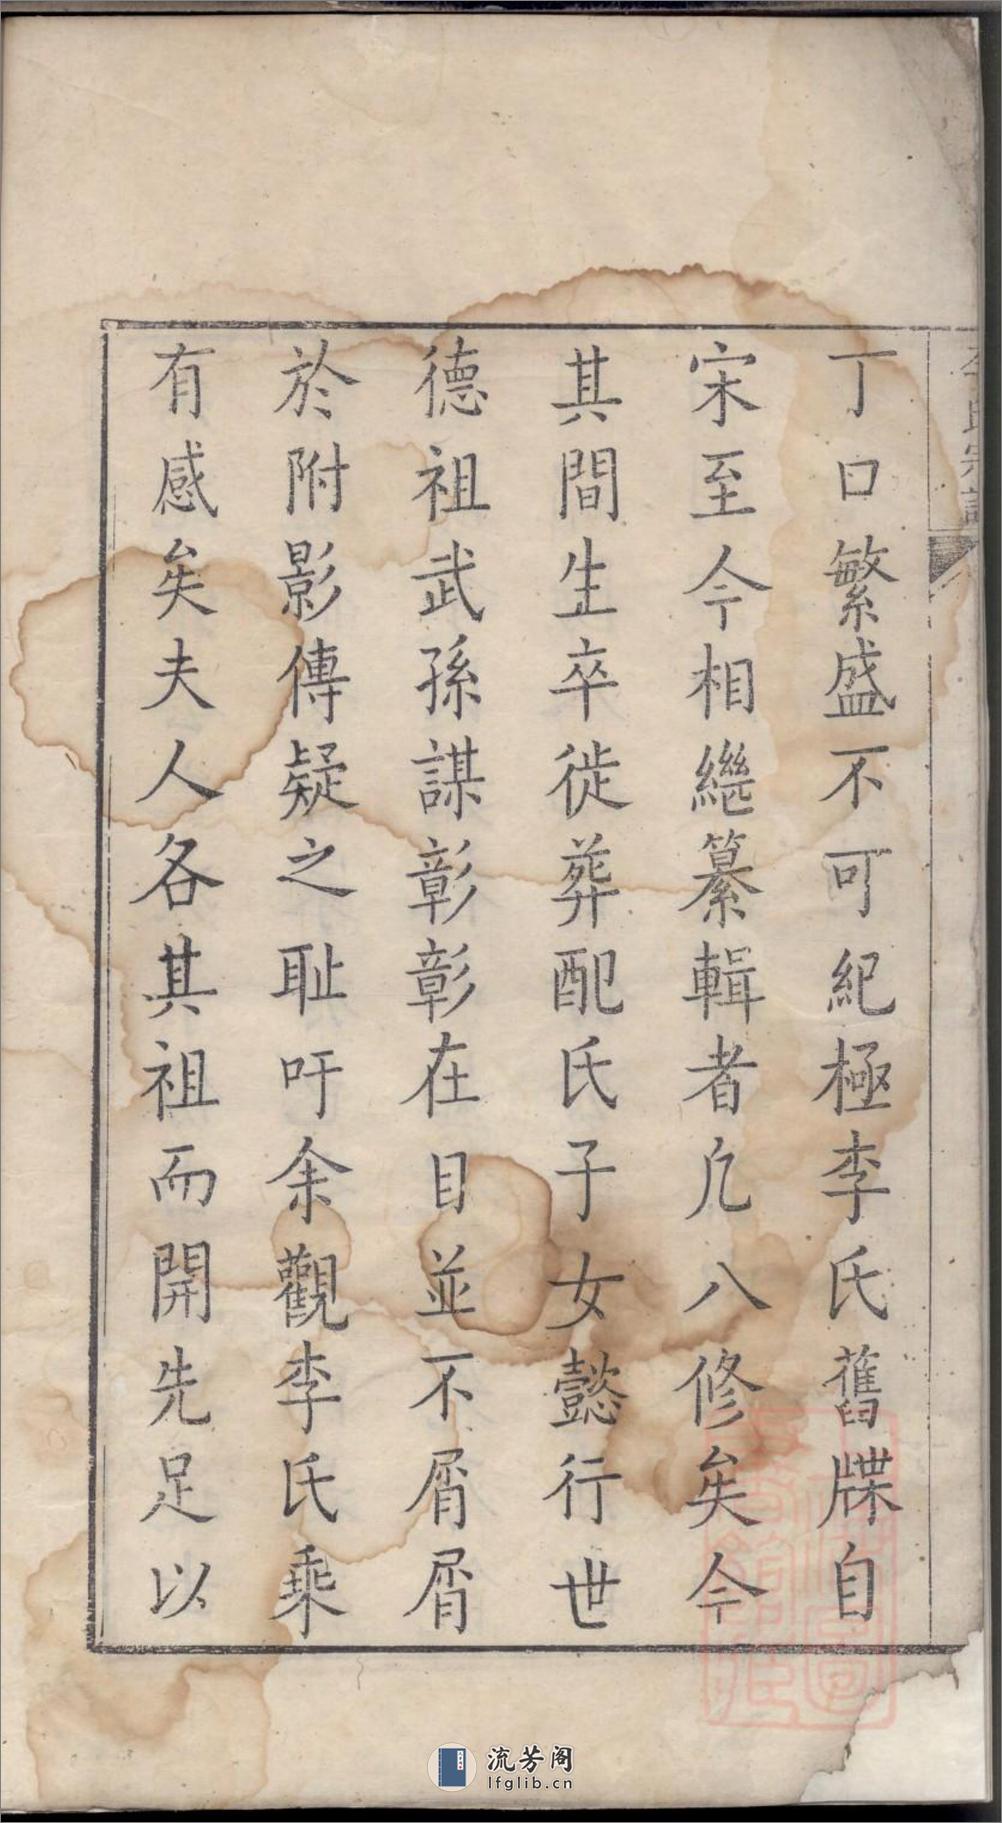 李氏宗譜
丁口繁盛不可紀極李氏舊牒自
宋至今相繼纂輯者凡八修矣今
其間生卒徙葬配氏子女懿行世
德祖武孫謀彰彰在目並不屑屑
於附影傳疑之耻吁余觀李氏乘
有感矣夫人各其祖而開先足以
流芳阁
lfglib.cn